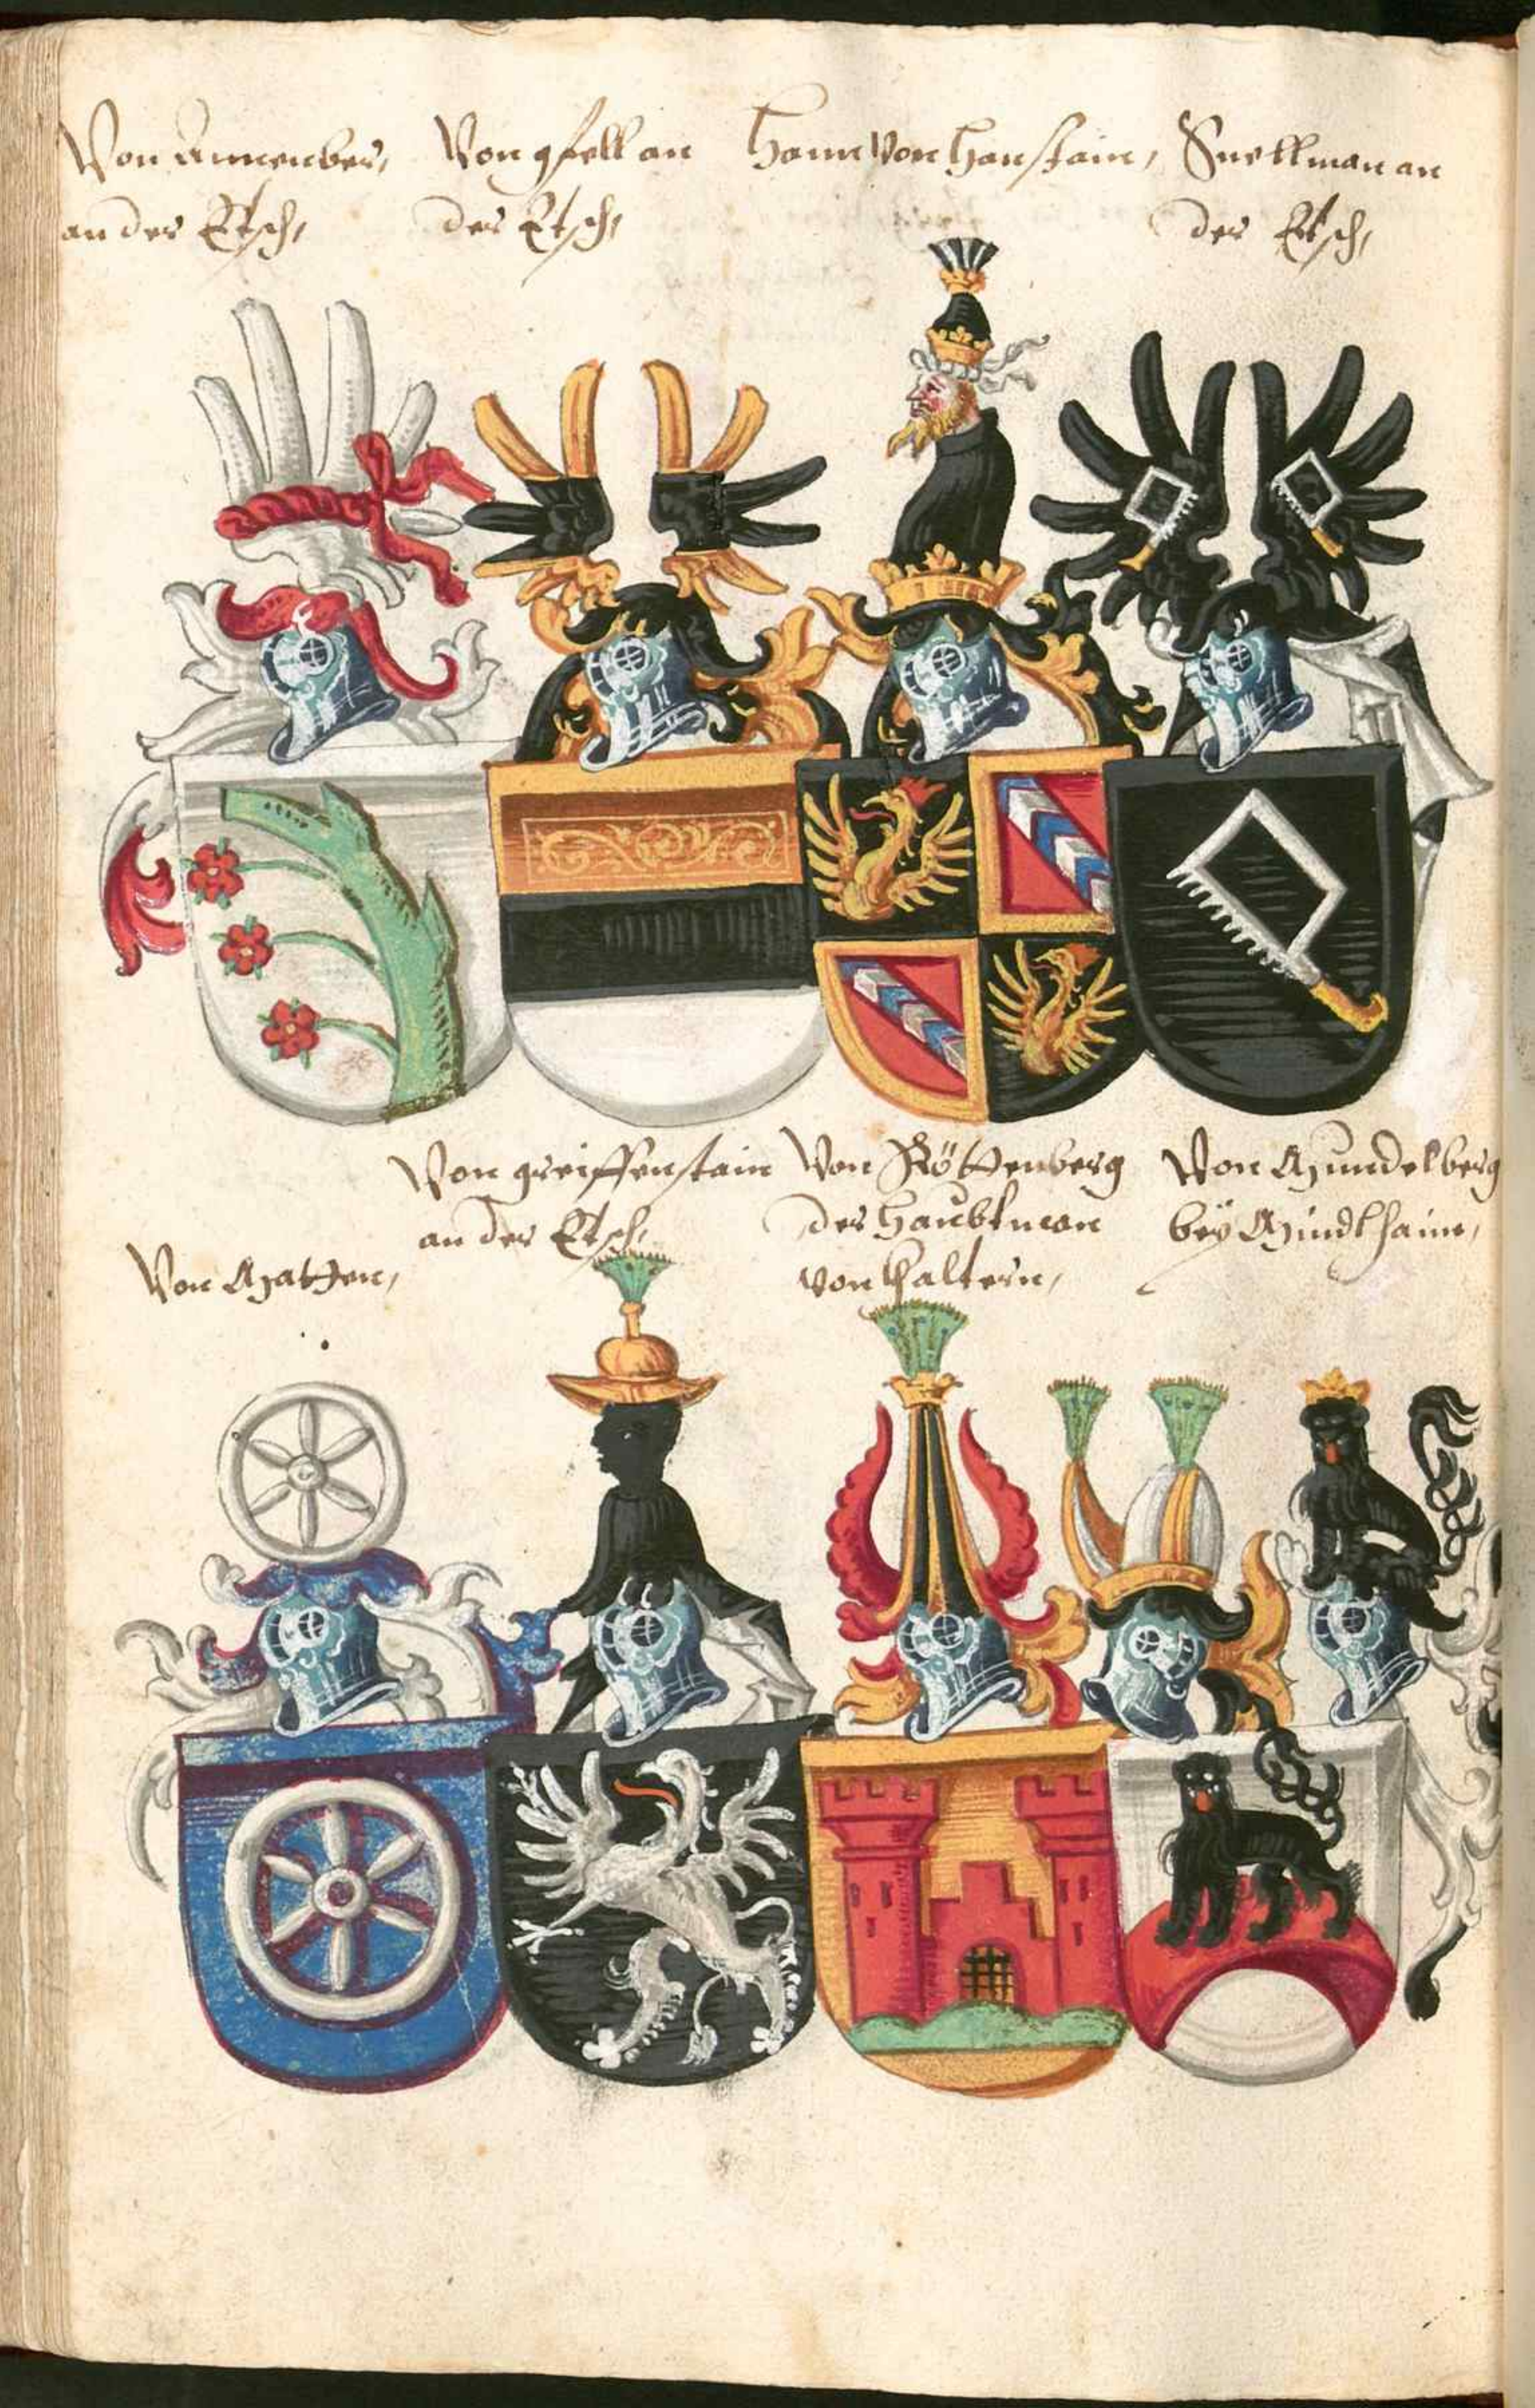 Von Annenber,
an der Etsch,
Von gfell an
der Etsch,
Hann Von Hanstain,
Snellman an
der Etsch,
Von Matzen,
Von greiffenstain
an der Etsch,
Von Röttenberg
der Haubtman
von Kaltern,
Von Mundelberg
beÿ Mindlhaim,